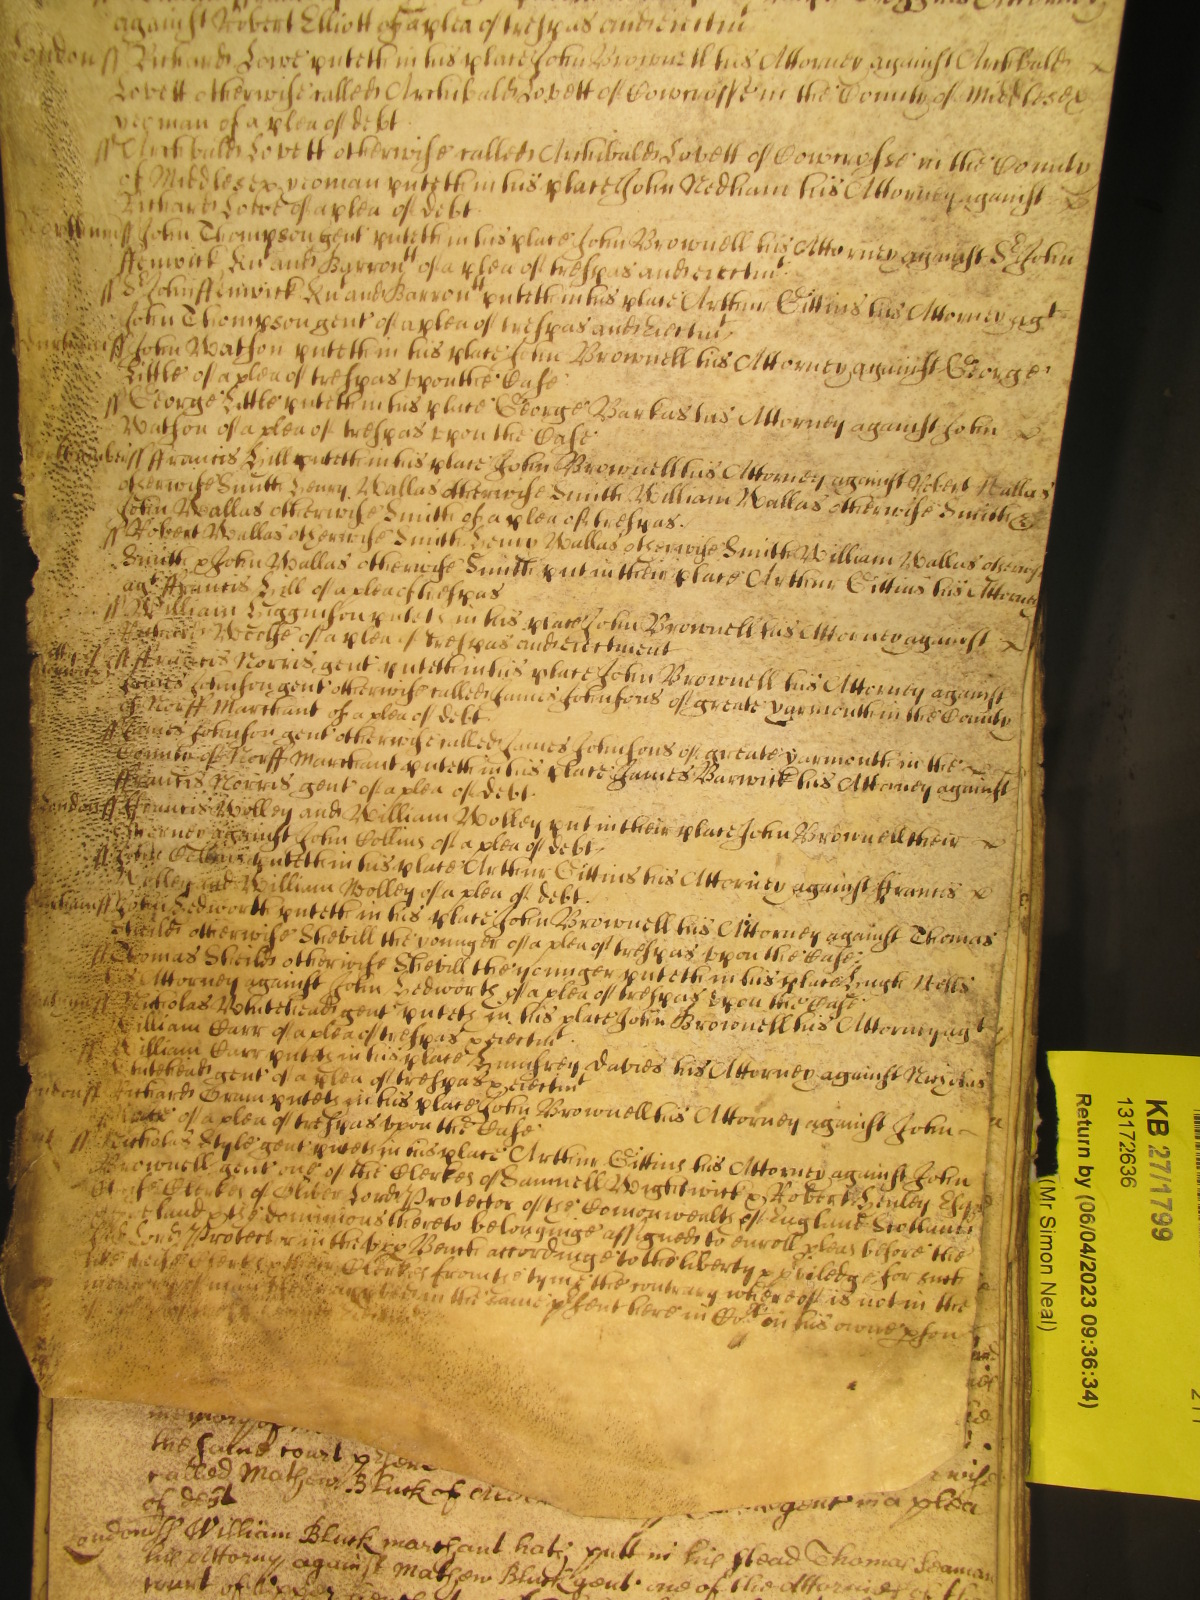 against Robert Elliott of a plea of trespas and eiectmt
London ss Richard Lowe putteth in his place John Brownell his Attorney against Archibald
Lovett otherwise called Archibald Lovett of Cowcrosse in the County of Middlesex
yeoman of a plea of debt
ss Archibald Lovett otherwise called Archibald Lovett of Cowcrosse in the County
of Middlesex yeoman putteth in his place John Nedham his Attorney against
Richard Lowe of a plea of debt
ss John Thompson gent putteth in his place John Brownell his Attorney against Sr John
ffenwick Kn and Barrontt of a plea of trespas and eiectmt
ss Sr John ffenwick Kn and Barrontt putteth in his place Arthur Gittins his Attorney agt
John Thompson gent of a plea of trespas and eiectmt
ss John Watson putteth in his place John Brownell his Attorney against George
Little of a plea of trespas upon the Case
ss George Little putteth in his place George Barkas his Attorney against John
Watson of a plea of trespas upon the Case
ss ffrancis Hill putteth in his place John Brownell his Attorney against Robert Wallas
otherwise Smith Henry Wallas otherwise Smith William Wallas otherwise Smith &
John Wallas otherwise Smith of a plea of trespas
ss Robert Wallas otherwise Smith Henry Wallas otherwise Smith William Wallas otherwise
Smith & John Wallas otherwise Smith put in their place Arthur Gittins his Attorney
agt ffrancis Hill of a plea of trespas
ss William Higginson putteth in his place John Brownell his Attorney against
of a plea of trespas and eiectment
ss ffrancis Norris gent putteth in his place John Brownell his Attorney against
James Johnson gent otherwise called James Johnsons of greate yarmouth in the County
of Norff Marchant of a plea of debt
ss James Johnson gent otherwise called James Johnsons of greate yarmouth in the
County of Norff Marchant putteth in his place James Barwick his Attorney against
ffrancis Norris gent of a plea of debt
London ss ffrancis Wolley and William Wolley put in their place John Brownell their
Attorney against John Collins of a plea of debt
ss John Collins putteth in his place Arthur Gittins his Attorney against ffrancis
Wolley and William Wolley of a plea of debt
ss John Hedworth putteth in his place John Brownell his Attorney against Thomas
otherwise Shevill the younger of a plea of trespas upon the Case
ss Thomas otherwise Shevill the younger putteth in his place Hugh
his Attorney against John Hedworth of a plea of trespas upon the Case
ss Nicholas Whitehead gent putteth in his place John Brownell his Attorney agt
William Carr of a plea of trespas & eiectmt
ss William Carr putteth in his place Humfrey Davies his Attorney against Nicholas
Whitehead gent of a plea of trespas & eiectmt
London ss Richard Gram putteth in his place John Brownell his Attorney against John
of a plea of trespas upon the Case
ss Nicholas Style gent putteth in his place Arthur Gittins his Attorney against John
Brownell gent one of the Clerkes of Samuell Wightwick & Robert Henley Esqs
Cheife Clerkes of Oliver Lord Protector of the Comonwealth of England Scotland
Ireland & the dominions thereto belonginge assigned to enroll pleas before the
said Lord Protector in the upp Bench accordinge to the liberty & priviledge for such
Cheife Clerkes & their Clerkes from the tyme the contrary whereof is not in the
memory of man in the same psent here in Cort in his owne pson
memory of
the same court psent
called Mathew Bluck of
of debt
gent via plea
London ss William Bluck marchant hath putt in his stead Thomas Seaman
his Attorny against Mathew Bluck gent one of the Attornies of the
court of
KB 27/1799
13172636
Return by (06/04/2023 09:36:34)
(Mr Simon Neal)